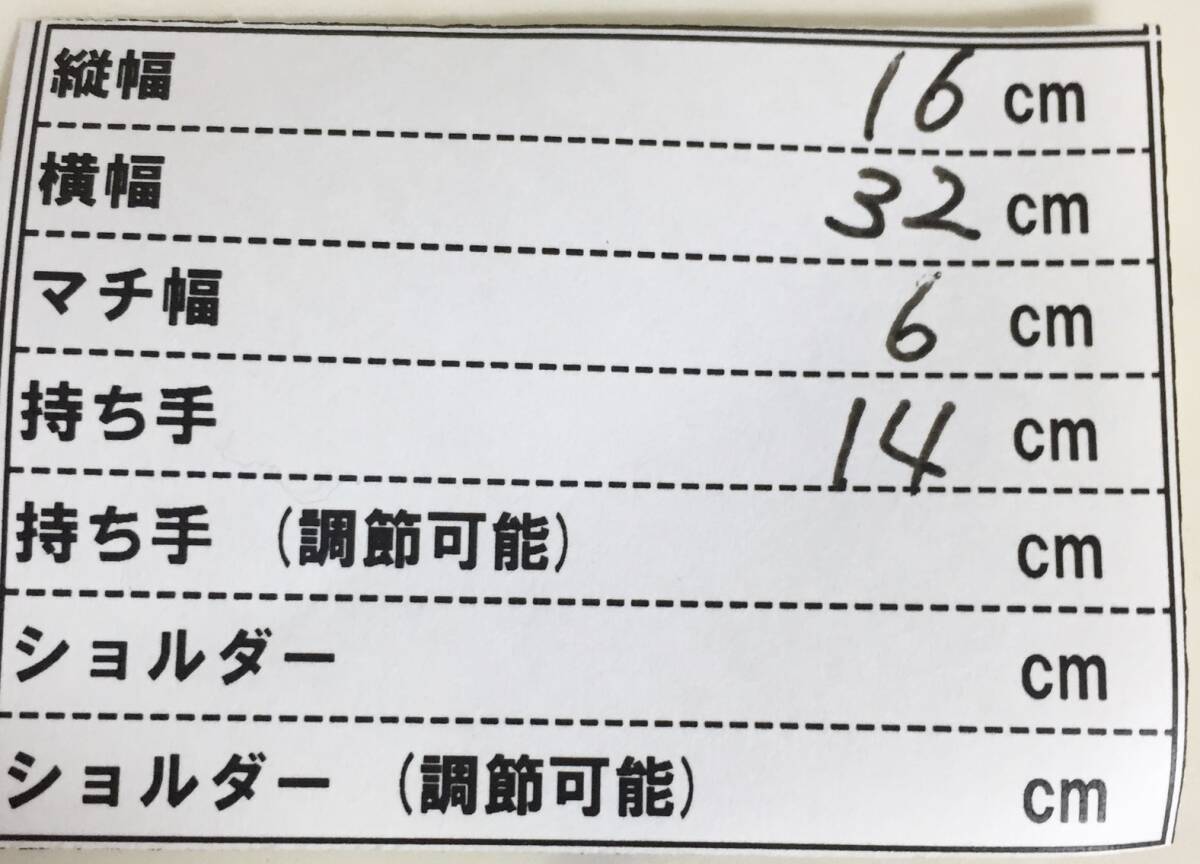 縦幅 16 cm
横幅 32 cm
マチ幅 6 cm
持ち手 14 cm
持ち手 (調節可能) cm
ショルダー cm
ショルダー (調節可能) cm